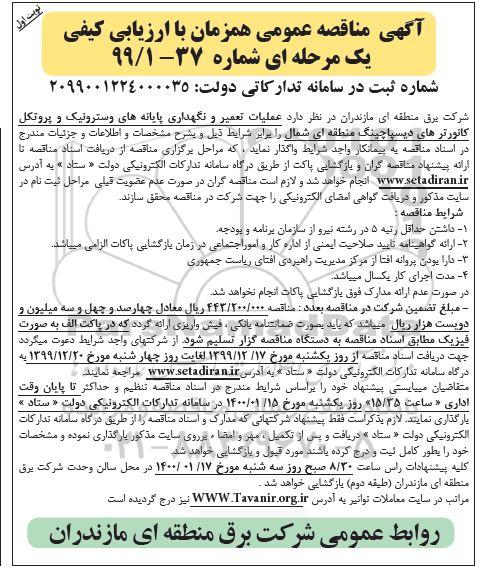 نوبت اول
آگهی مناقصه عمومی همزمان با ارزیابی کیفی
یک مرحله ای شماره ۳۷-۹۹/۱
شماره ثبت در سامانه تدارکاتی دولت: ۲۰۹۹۰۰۱۲۲۴۰۰۰۰۳۵
شرکت برق منطقه ای مازندران در نظر دارد عملیات تعمیر و نگهداری پایانه های وسترونیک و پروتکل
کانورتر های دیسپاچینگ منطقه ای شمال را برابر شرایط ذیل و بشرح مشخصات و اطلاعات و جزئیات مندرج
در اسناد مناقصه به پیمانکار واجد شرایط واگذار نماید ، که مراحل برگزاری مناقصه از دریافت اسناد مناقصه تا
ارائه پیشنهاد مناقصه گران و بازگشایی پاکت از طریق درگاه سامانه تدارکات الکترونیکی دولت « ستاد » به آدرس
www.setadiran.ir انجام خواهد شد و لازم است مناقصه گران در صورت عدم عضویت قبلی مراحل ثبت نام در
سایت مذکور و دریافت گواهی امضای الکترونیکی را جهت شرکت در مناقصه محقق سازند.
شرایط مناقصه :
۱- داشتن حداقل رتبه ۵ در رشته نیرو از سازمان برنامه و بودجه.
۲- ارائه گواهینامه تأیید صلاحیت ایمنی از اداره کار و امور اجتماعی در زمان بازگشایی پاکات الزامی میباشد.
۳- دارا بودن پروانه افتا از مرکز مدیریت راهبردی افتای ریاست جمهوری
۴- مدت اجرای کار یکسال میباشد.
در صورت عدم ارائه مدارک فوق بازگشایی پاکات انجام نخواهد شد.
- مبلغ تضمین شرکت در مناقصه بعدد : مناقصه ۴۴۳/۲۰۰/۰۰۰ ریال معادل چهارصد و چهل و سه میلیون و
دویست هزار ریال میباشد که باید بصورت ضمانتنامه بانکی ، فیش واریزی ارائه گردد که در پاکت الف به صورت
فیزیک مطابق اسناد مناقصه به دستگاه مناقصه گزار تسلیم شود. از شرکتهای واجد شرایط دعوت میگردد
جهت دریافت اسناد مناقصه از روز یکشنبه مورخ ۱۳۹۹/۱۲/۱۷ لغایت روز چهار شنبه مورخ ۱۳۹۹/۱۲/۲۰ به
درگاه سامانه تدارکات الکترونیکی دولت « ستاد » به آدرس www.setadiran.ir مراجعه نمایند.
متقاضیان میبایستی پیشنهاد خود را براساس شرایط مندرج در اسناد مناقصه تنظیم و حداکثر تا پایان وقت
اداری « ساعت ۱۵/۳۵» روز یکشنبه مورخ ۱۴۰۰/۰۱/۱۵ در سامانه تدارکات الکترونیکی دولت « ستاد »
بارگذاری نمایند. لازم بذکراست فقط پیشنهاد شرکتهائی که مدارک و اسناد مناقصه را از طریق درگاه سامانه تدارکات
الکترونیکی دولت « ستاد » دریافت و پس از تکمیل ، مهر و امضا ، برروی سایت مذکور بارگذاری نموده و مشخصات
خود را بطور کامل ثبت و درج کرده باشند مورد قبول و بازگشایی خواهد شد.
کلیه پیشنهادات راس ساعت ۸/۳۰ صبح روز سه شنبه مورخ ۱۴۰۰/۰۱/۱۷ در محل سالن وحدت شرکت برق
منطقه ای مازندران (طبقه دوم) بازگشایی خواهد شد .
مراتب در سایت معاملات توانیر به آدرس WWW.Tavanir.org.ir نیز درج گردیده است
روابط عمومی شرکت برق منطقه ای مازندران